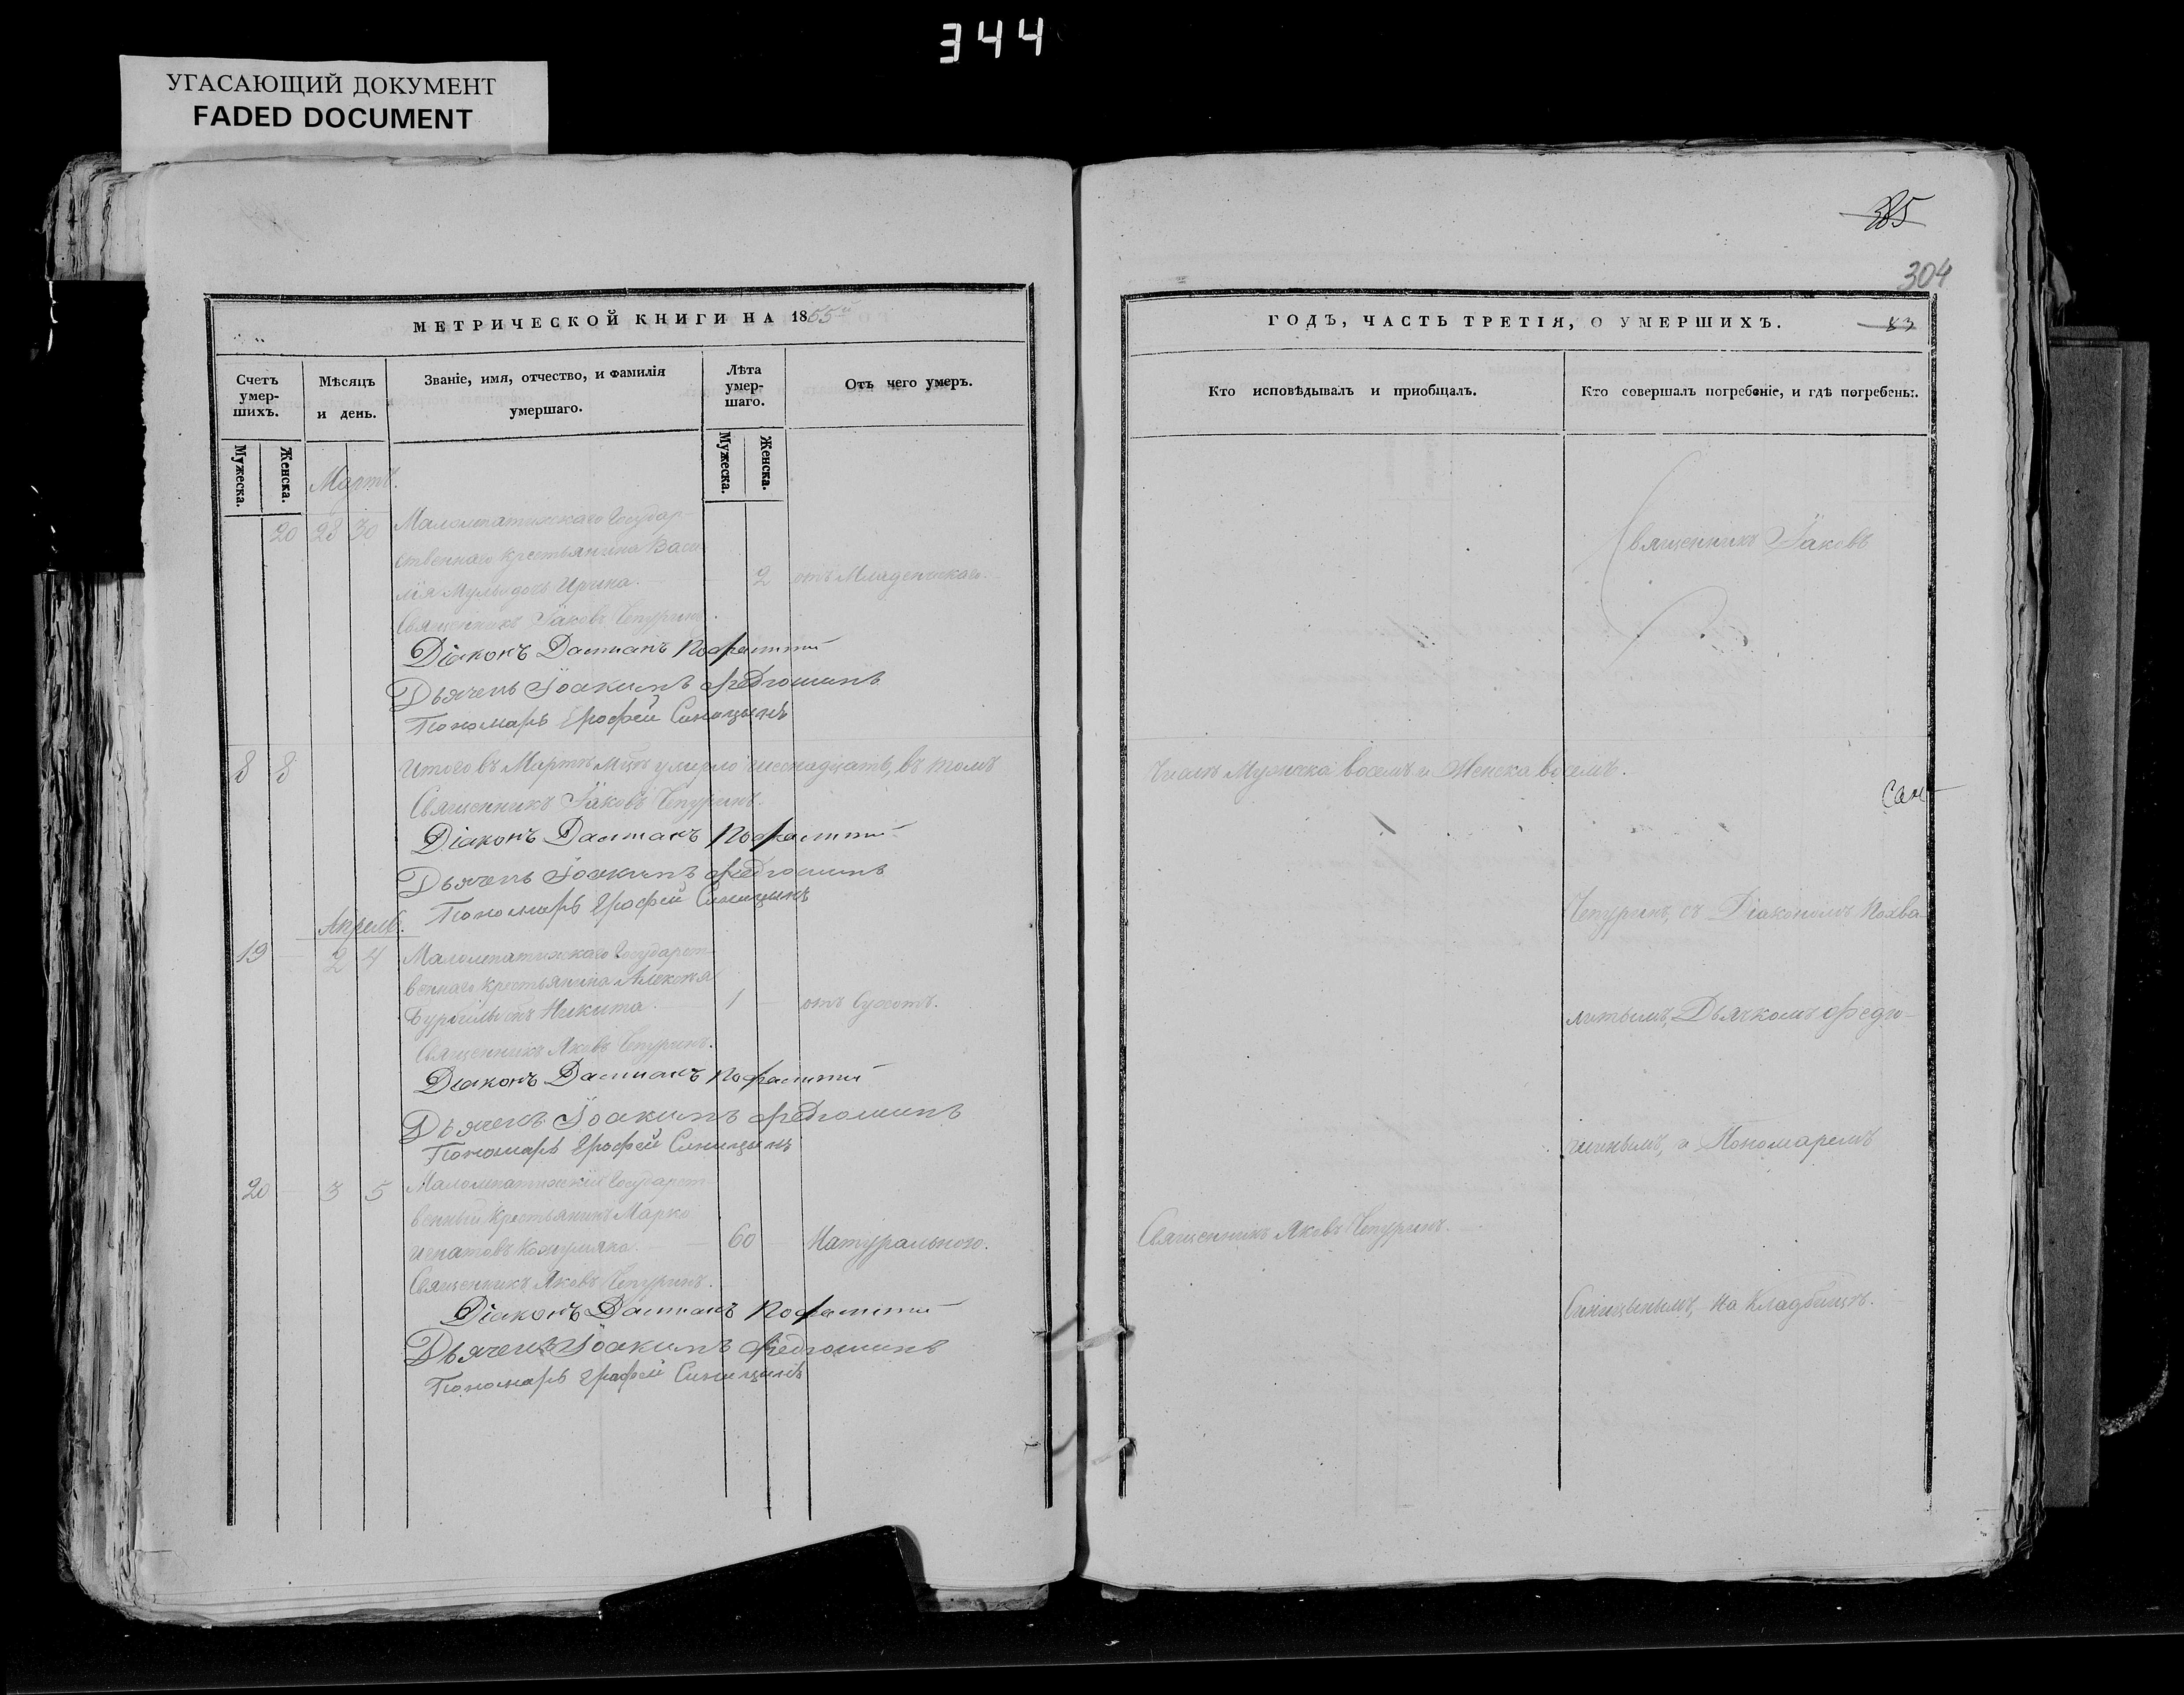 344
УГАСАЮЩИЙ ДОКУМЕНТ
FADED DOCUMENT
385
304
МЕТРИЧЕСКОЙ КНИГИ НА 1855
Счетъ умер-шихъ.
Мѣсяцъ и день.
Званіе, имя, отчество, и фамилія умершаго.
Лѣта умер-шаго.
Отъ чего умеръ.
Мужеска.
Женска.
Мужеска.
Женска.
Мартъ.
20 28 30 Государ-
ственнаго крестьянина Васи-
лія дочь Ирина. 2 отъ Младенческаго.
Священникъ Іаковъ Чепуринъ.
Діаконъ Даміанъ
Дьячекъ Іоакимъ Федюшинъ
Пономарь Ерофей Синицынъ
8 8 Итого въ Мартѣ мцѣ умерло шеснадцать, въ томъ
Священникъ Іаковъ Чепуринъ.
Діаконъ Даміанъ
Дьячекъ Іоакимъ Федюшинъ
Пономарь Ерофей Синицынъ
Апрель.
19 2 4 Государст-
веннаго крестьянина Алексѣя
сынъ Никита. 1 отъ Сухотъ.
Священникъ Яковъ Чепуринъ.
Діаконъ Даміанъ
Дьячекъ Іоакимъ Федюшинъ
Пономарь Ерофей Синицынъ
20 3 5 Государст-
венный крестьянинъ Марко
Игнатовъ 60 Натурального.
Священникъ Яковъ Чепуринъ.
Діаконъ Даміанъ
Дьячекъ Іоакимъ Федюшинъ
Пономарь Ерофей Синицынъ
ГОДЪ, ЧАСТЬ ТРЕТІЯ, О УМЕРШИХЪ. 83
Кто исповѣдывалъ и пріобщалъ.
Кто совершалъ погребеніе, и гдѣ погребены.
Священникъ Іаковъ
числѣ Мужеска восемь и Женска восемь.
Чепуринъ, съ Діакономъ Похва-
литымъ, Дьячкомъ Федю-
шинымъ, и Пономаремъ
Священникъ Яковъ Чепуринъ.
Синицынымъ, на кладбищѣ.